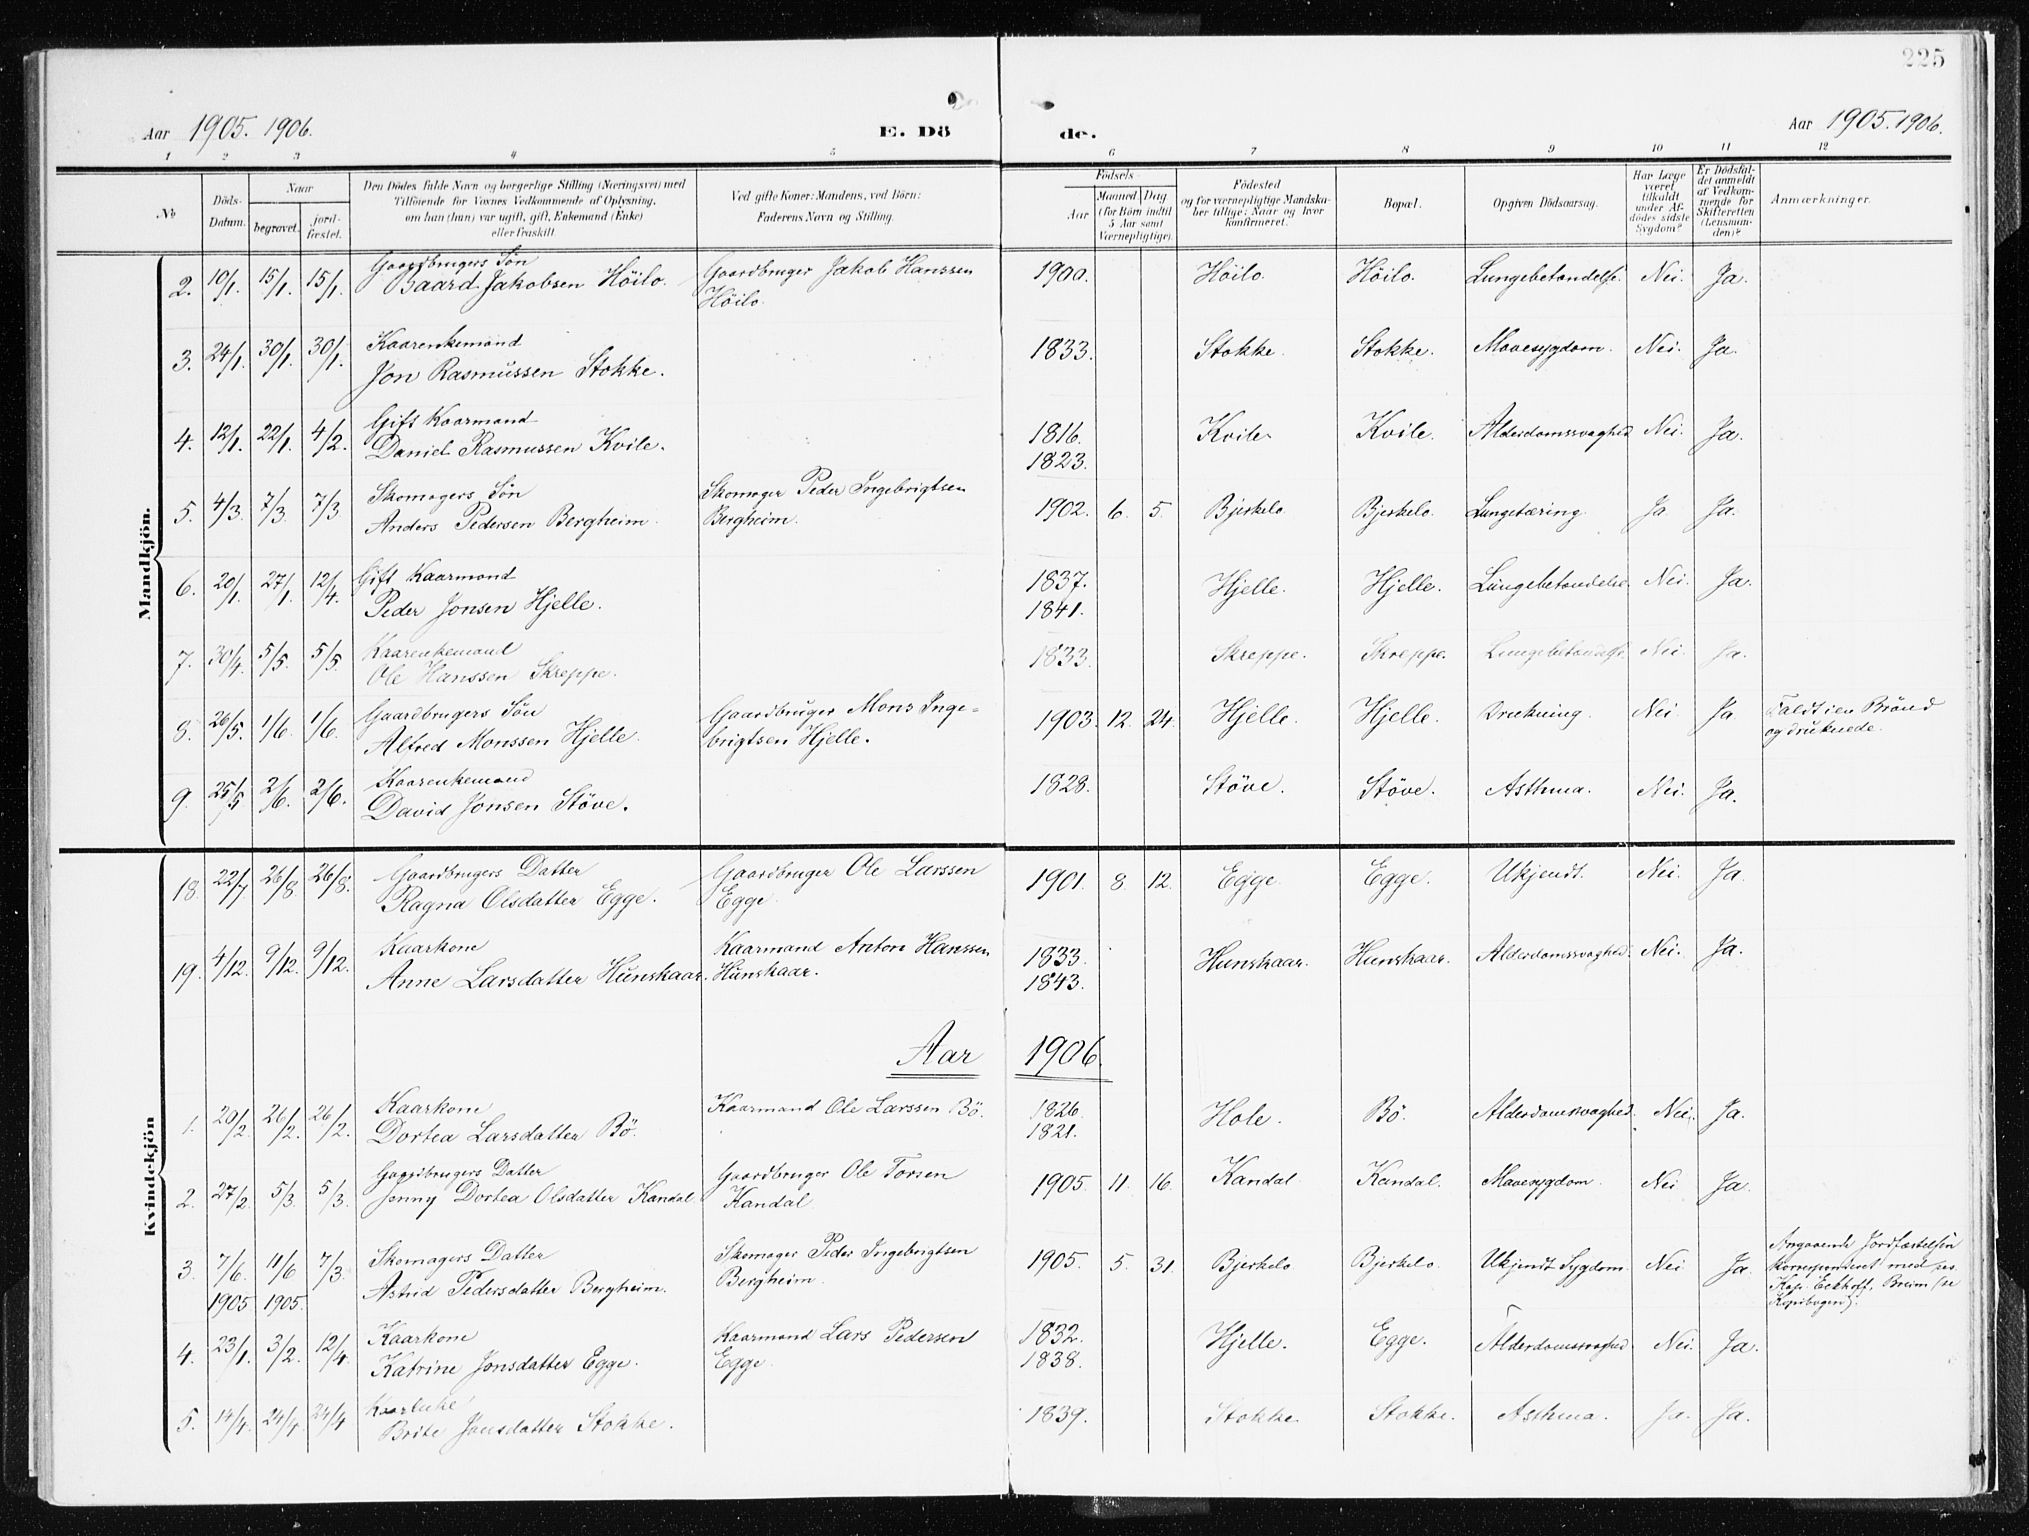 225
Aar 1905. 1906.
E. Dö
de.
Aar 1905. 1906.
1 2 3 4 5 6 7 8 9 10 11 12
No
Döds-Datum.
Naar
begravet.
jord-fæstet.
Den Dödes fulde Navn og borgerlige Stilling (Næringsvei) med
Tilföiende for Voxnes Vedkommende af Oplysning,
om han (hun) var ugift, gift, Enkemand (Enke)
eller fraskilt.
Ved gifte Koner: Mandens, ved Börn:
Faderens Navn og Stilling.
Födsels-
Aar
Maaned Dag
(for Börn indtil
5 Aar samt
Værnepligtige).
Födested
og for værnepligtige Mandska-
ber tillige: Naar og hvor
konfirmeret.
Bopæl.
Opgiven Dödsaarsag.
Har Læge
været
tilkaldt
under Af-
dödes sidste
Sygdom?
Er Dödsfal-
det anmeldt
af Vedkom-
mende for
Skifteretten
(Lensman-
den)?
Anmærkninger.
Mandkjön.
2. 10/1. 15/1. 15/1. Gaardbrugers Sön
Baard Jakobsen Höilo. Gaardbruger Jakob Hanssen
Höilo. 1900. Höilo. Höilo. Lungebetændelse. Nei. Ja.
3. 24/1. 30/1. 30/1. Kaarenkemand
Jon Rasmussen Stokke. 1833. Stokke. Stokke. Mavesygdom. Nei. Ja.
4. 12/1. 22/1. 4/2. Gift Kaarmand
Daniel Rasmussen Kvile. 1816. Kvile. Kvile. Alderdomssvaghed Nei. Ja.
1823.
5. 4/3. 7/3. 7/3 Skomagers Sön
Anders Pedersen Bergheim. Skomager Peder Ingebrigtsen
Bergheim. 1902. 6. 5. Bjerkelo Bjerkelo. Lungetæring. Ja Ja.
6. 20/1. 27/1. 12/4. Gift Kaarmand
Peder Jonsen Hjelle. 1837. Hjelle. Hjelle. Lungebetændelse. Nei Ja.
1841.
7. 30/4. 5/5. 5/5 Kaarenkemand
Ole Hanssen Skreppe. 1833. Skreppe. Skreppe. Lungebetændelse. Nei. Ja.
8. 26/5. 1/6. 1/6. Gaardbrugers Sön
Alfred Monssen Hjelle. Gaardbruger Mons Inge-
brigtsen Hjelle. 1903. 12. 24. Hjelle. Hjelle. Drukning. Nei. Ja Faldt i en Brönd
og druknede.
9. 25/5 2/6. 2/6. Kaarenkemand
David Jonsen Stöve. 1828. Stöve. Stöve. Asthma. Nei. Ja.
Kvindekjön
18. 22/7. 26/8. 26/8. Gaardbrugers Datter
Ragna Olsdatter Egge. Gaardbruger Ole Larssen
Egge. 1901. 8. 12. Egge. Egge. Ukjendt. Nei. Ja.
19. 4/12. 9/12. 9/12. Kaarkone
Anne Larsdatter Hunskaar. Kaarmand Anton Hanssen
Hunskaar. 1833. Hunskaar. Hunskaar. Alderdomssvaghed. Nei. Ja.
1843.
Aar 1906.
1. 20/2. 26/2. 26/2. Kaarkone
Dortea Larsdatter Bö. Kaarmand Ole Larssen Bö. 1826. Hole. Bö. Alderdomssvaghed. Nei. Ja.
1821.
2. 27/2. 5/3. 5/3. Gaardbrugers Datter
Jenny Dortea Olsdatter Kandal. Gaardbruger Ole Torsen
Kandal. 1905. 11. 16. Kandal. Kandal. Mavesygdom. Nei Ja.
3. 7/6. 11/6 7/3. Skomagers Datter
1905 1905. Astrid Pedersdatter Bergheim. Skomager Peder Ingebrigtsen
Bergheim. 1905. 5. 31. Bjerkelo Bjerkelo. Ukjendt Sygdom. Nei Ja. Angaaende Jordfæstelsen
korresponderet med
Kap. Eckhoff, Breim (se
Kopibogen).
4. 23/1. 3/2. 12/4. Kaarkone
Katrine Jonsdatter Egge. Kaarmand Lars Pedersen
Egge. 1832. Hjelle. Egge. Alderdomssvaghed. Nei. Ja.
1838.
5. 14/4. 24/4 24/4 Kaarenke
Brite Jonsdatter Stokke. 1839. Stokke. Stokke. Asthma. Ja. Ja.